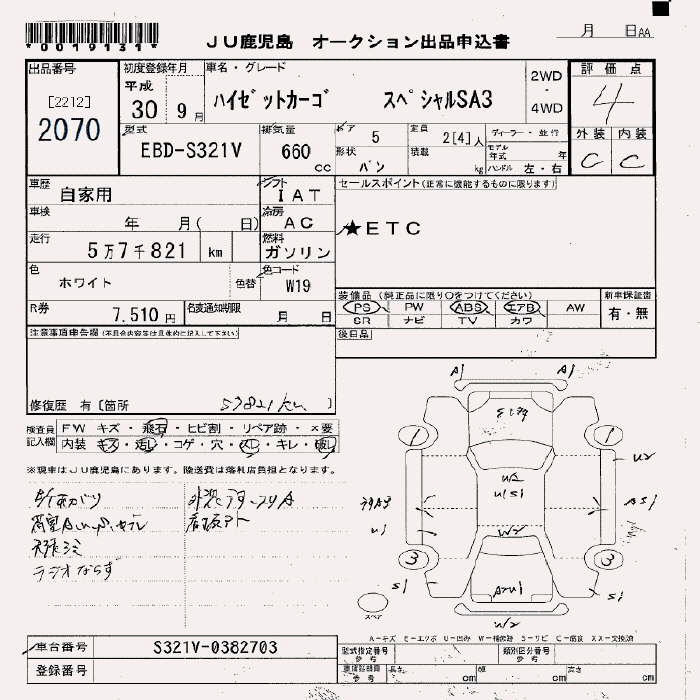 *0019131*
JU鹿児島 オークション出品申込書
月 日AA
出品番号
[2212]
2070
初度登録年月
平成
30 9月
車名・グレード
ハイゼットカーゴ スペシャルSA3
2WD
・
4WD
評価点
4
外装 内装
C C
型式
EBD-S321V
排気量
660
cc
ドア 5
形状 バン
定員 2[4]人
積載 kg
ディーラー・並行
モデル年式 年
ハンドル 左・右
車歴
自家用
シフト
IAT
セールスポイント(正常に機能するものに限ります)
★ETC
車検
年 月( 日)
冷房
AC
走行
5万7千821 km
燃料
ガソリン
色
ホワイト
色替
色コード
W19
装備品(純正品に限り○をつけてください)
PS PW ABS エアB AW
SR ナビ TV カワ
新車保証書
有・無
R券
7,510円
名変通知期限
月 日
後日品
注意事項申告欄(不具合内容等は具体的に記入して下さい)
修復歴 有〔箇所 57821km 〕
検査員
記入欄
FW キズ・飛石・ヒビ割・リペア跡・×要
内装 キズ・汚し・コゲ・穴・・キレ・
※現車はJU鹿児島にあります。陸送費は落札店負担となります。
ラジオならず
A1 A1
1 1
U2
W2
U1S1
AS1
U1
W2
3 3
S1 S1
W2
スペア
A-キズ E-エクボ U-凹み W-補修跡 S-サビ C-腐食 XX-交換済
車台番号 S321V-0382703
登録番号
型式指定番号
参考
類別区分番号
参考
車両諸元
参考
長さ cm
幅 cm
高さ cm